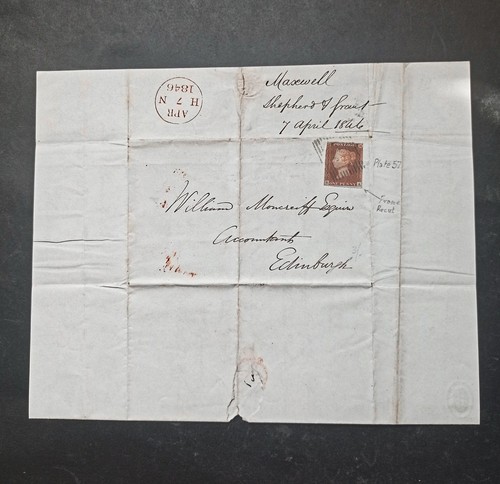 APR
H 7 N
1846
Maxwell
Shepherd & Grant
7 April 1846
POSTAGE
ONE PENNY
Plate 57
William Moncreiff Esquire
Accountant
Edinburgh